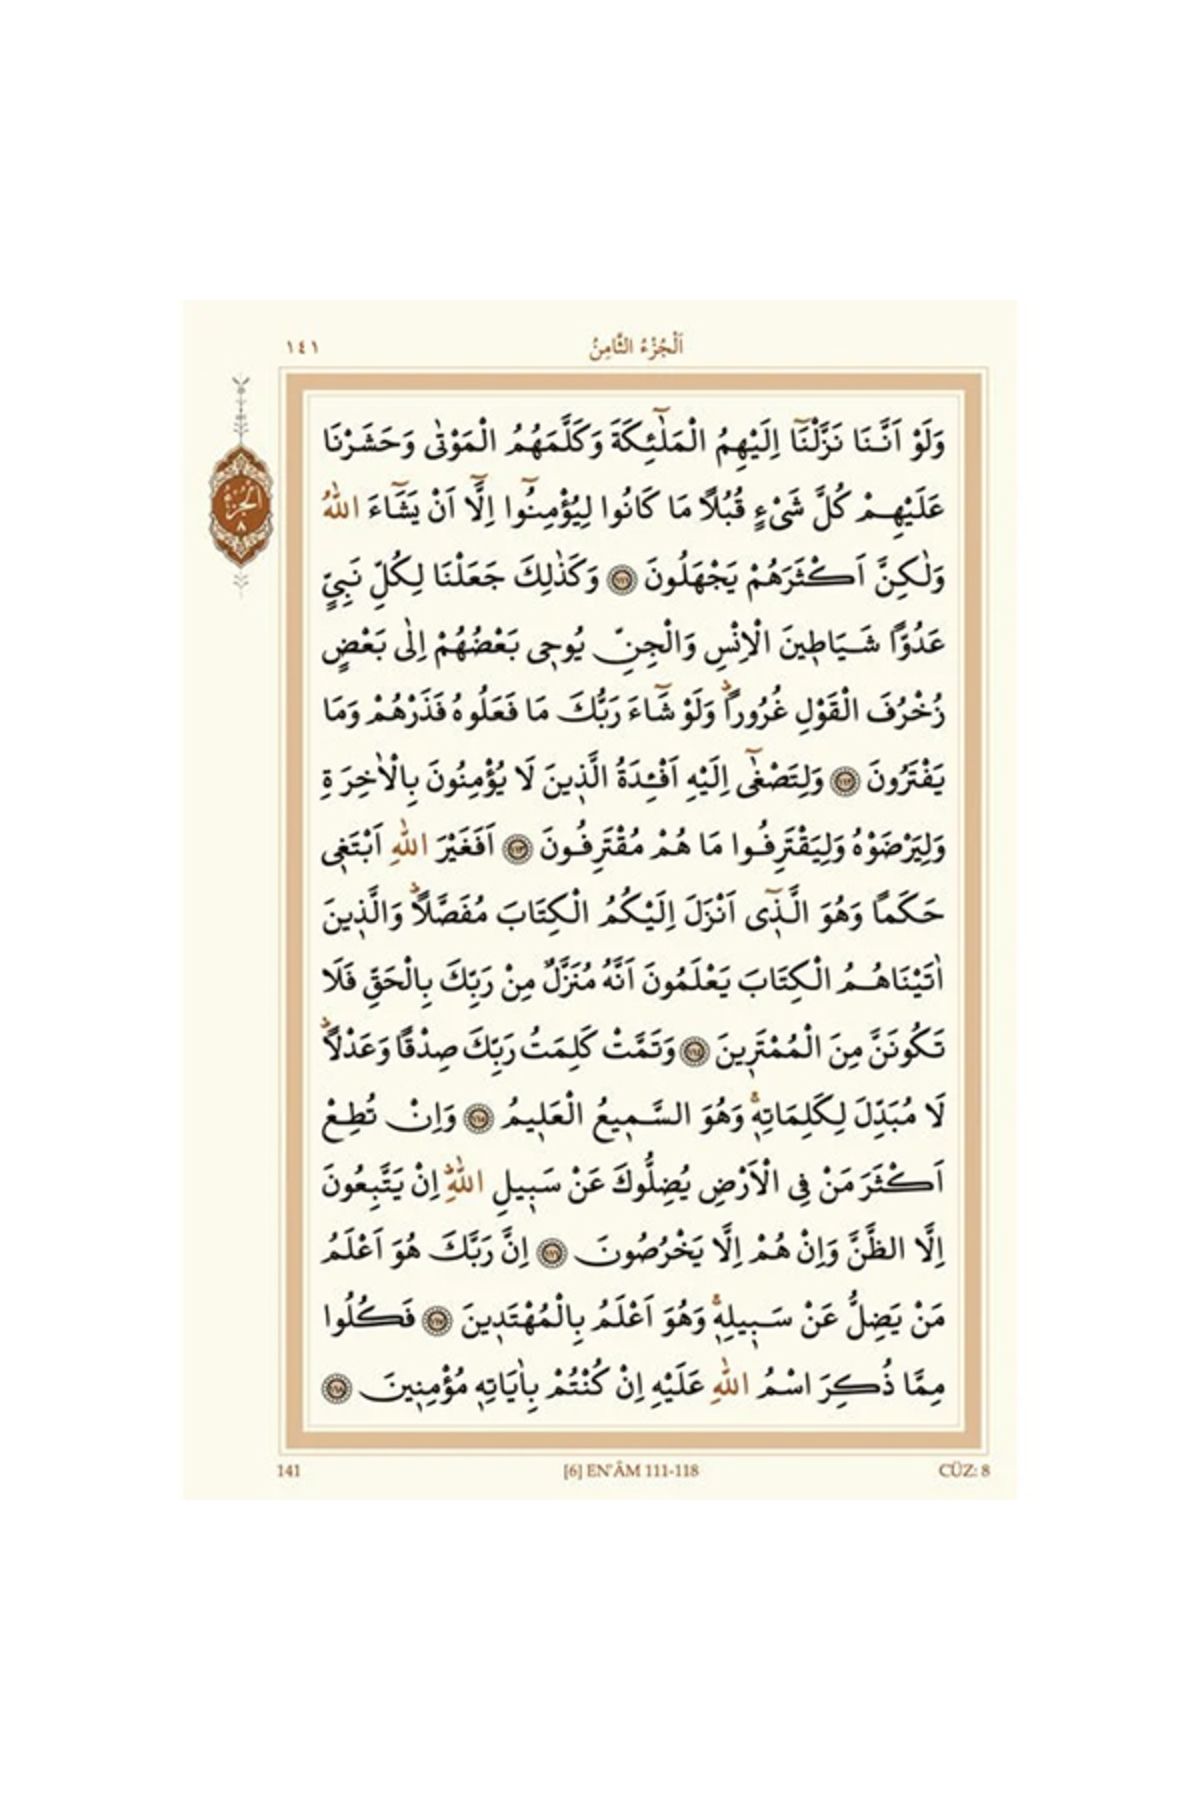 ١٤١
اَلْجُزْءُ الثَّامِنُ
اَلْجُزْءُ
٨
وَلَوْ اَنَّنَا نَزَّلْنَٓا اِلَيْهِمُ الْمَلٰٓئِكَةَ وَكَلَّمَهُمُ الْمَوْتٰى وَحَشَرْنَا
عَلَيْهِمْ كُلَّ شَيْءٍ قُبُلًا مَا كَانُوا لِيُؤْمِنُٓوا اِلَّٓا اَنْ يَشَٓاءَ اللّٰهُ
وَلٰكِنَّ اَكْثَرَهُمْ يَجْهَلُونَ ﴿١١١﴾ وَكَذٰلِكَ جَعَلْنَا لِكُلِّ نَبِيٍّ
عَدُوًّا شَيَاطٖينَ الْاِنْسِ وَالْجِنِّ يُوحٖى بَعْضُهُمْ اِلٰى بَعْضٍ
زُخْرُفَ الْقَوْلِ غُرُورًاؕ وَلَوْ شَٓاءَ رَبُّكَ مَا فَعَلُوهُ فَذَرْهُمْ وَمَا
يَفْتَرُونَ ﴿١١٢﴾ وَلِتَصْغٰٓى اِلَيْهِ اَفْـِٔدَةُ الَّذٖينَ لَا يُؤْمِنُونَ بِالْاٰخِرَةِ
وَلِيَرْضَوْهُ وَلِيَقْتَرِفُوا مَا هُمْ مُقْتَرِفُونَ ﴿١١٣﴾ اَفَغَيْرَ اللّٰهِ اَبْتَغٖى
حَكَمًا وَهُوَ الَّذٖٓى اَنْزَلَ اِلَيْكُمُ الْكِتَابَ مُفَصَّلًاؕ وَالَّذٖينَ
اٰتَيْنَاهُمُ الْكِتَابَ يَعْلَمُونَ اَنَّهُ مُنَزَّلٌ مِنْ رَبِّكَ بِالْحَقِّ فَلَا
تَكُونَنَّ مِنَ الْمُمْتَرٖينَ ﴿١١٤﴾ وَتَمَّتْ كَلِمَتُ رَبِّكَ صِدْقًا وَعَدْلًاؕ
لَا مُبَدِّلَ لِكَلِمَاتِهٖۚ وَهُوَ السَّمٖيعُ الْعَلٖيمُ ﴿١١٥﴾ وَاِنْ تُطِعْ
اَكْثَرَ مَنْ فِى الْاَرْضِ يُضِلُّوكَ عَنْ سَبٖيلِ اللّٰهِؕ اِنْ يَتَّبِعُونَ
اِلَّا الظَّنَّ وَاِنْ هُمْ اِلَّا يَخْرُصُونَ ﴿١١٦﴾ اِنَّ رَبَّكَ هُوَ اَعْلَمُ
مَنْ يَضِلُّ عَنْ سَبٖيلِهٖۚ وَهُوَ اَعْلَمُ بِالْمُهْتَدٖينَ ﴿١١٧﴾ فَكُلُوا
مِمَّا ذُكِرَ اسْمُ اللّٰهِ عَلَيْهِ اِنْ كُنْتُمْ بِاٰيَاتِهٖ مُؤْمِنٖينَ ﴿١١٨﴾
141
[6] EN'ÂM 111-118
CÜZ: 8